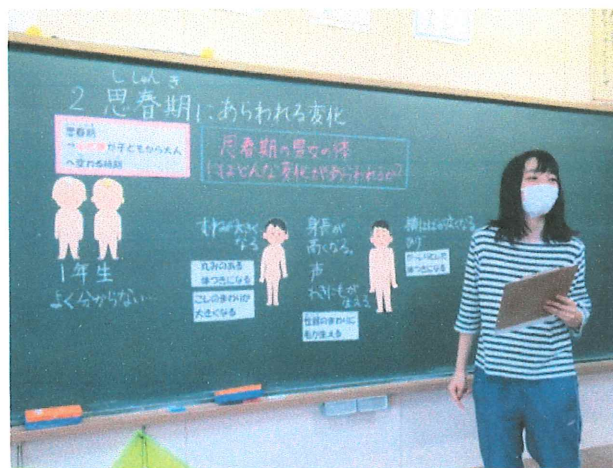 ししゅんき
2 思春期にあらわれる変化
思春期
が子どもから大人
へ変わる時期
思春期の男女の体
にはどんな変化があらわれるか?
1年生
よく分からない…
大きく
なる
丸みのある
体つきになる
こしのまわりが
大きくなる
身長が
高くなる。
声
わきにもが
生える
性器のまわりに
毛が生える
横はばが広くなる
体つきになる